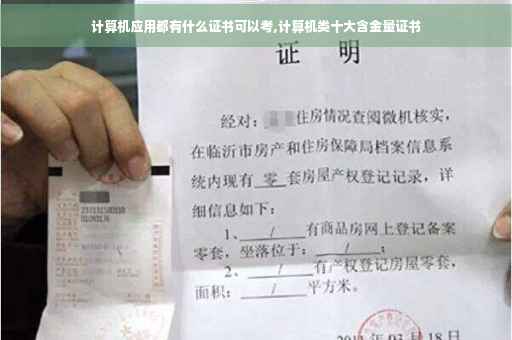 计算机应用都有什么证书可以考,计算机类十大含金量证书
证 明
经对：住房情况查阅微机核实，
在临沂市房产和住房保障局档案信息系
统内现有 零 套房屋产权登记记录，详
细信息如下：
1、 / 有商品房网上登记备案
零套，坐落位于： / ；
2、 / 有产权登记房屋零套，
面积： / 平方米。
2011 年 03 月 18 日